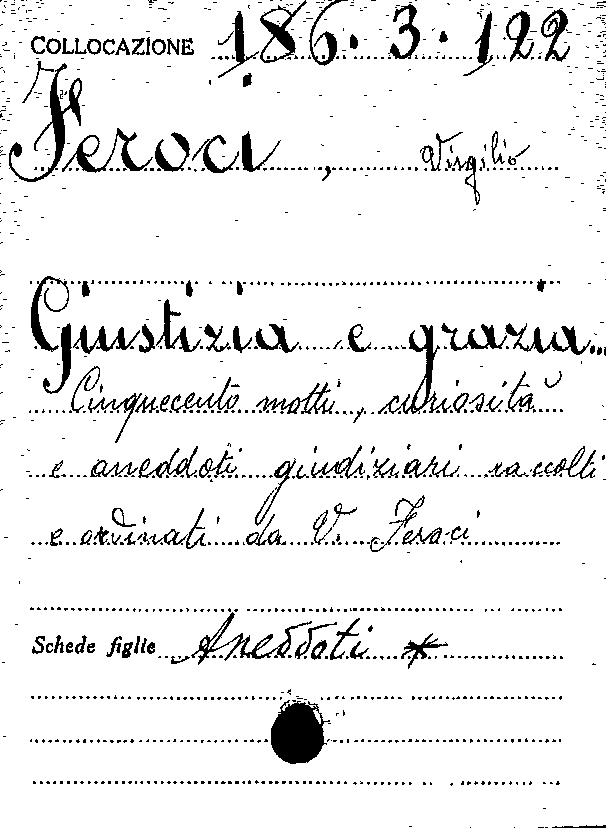 COLLOCAZIONE 186.3.122
Feroci, Virgilio
Giustizia e grazia...
Cinquecento motti, curiosità
e aneddoti giudiziari raccolti
e ordinati da V. Feroci
Schede figlie Aneddoti *